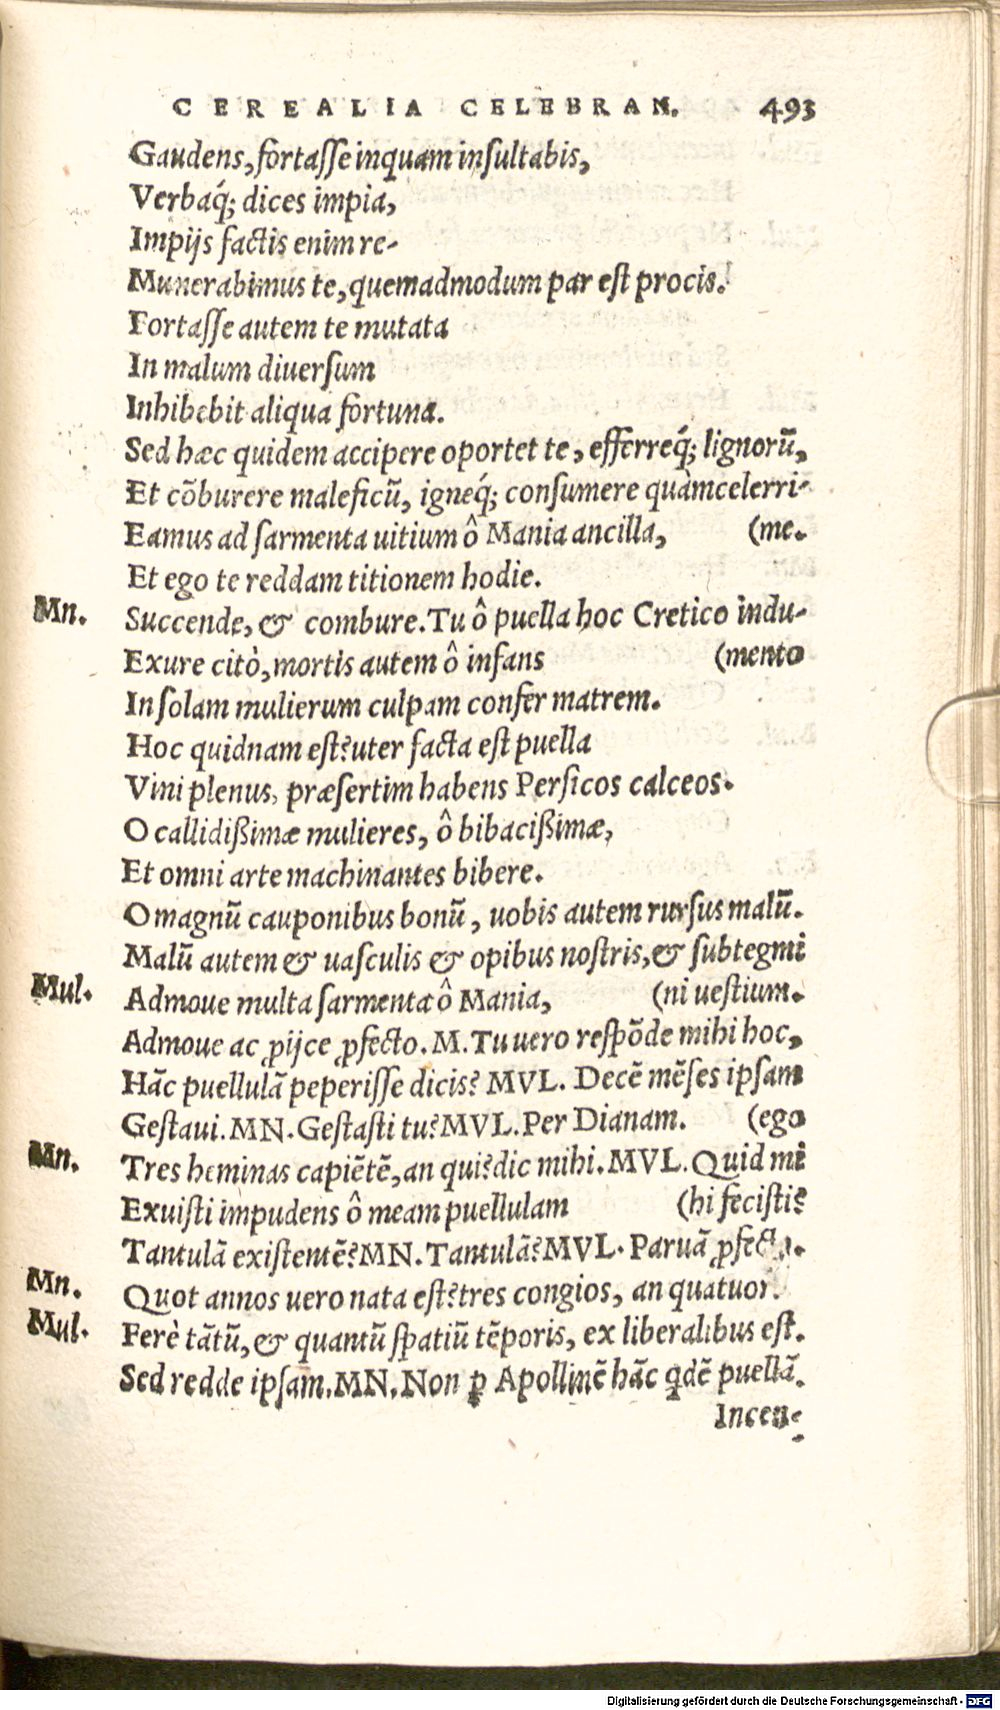 CEREALIA CELEBRAN. 493
Gaudens, fortasse inquam insultabis,
Verbaq́; dices impia,
Impijs factis enim re-
Munerabimus te, quemadmodum par est procis.
Fortasse autem te mutata
In malum diuersum
Inhibebit aliqua fortuna.
Sed hæc quidem accipere oportet te, efferreq́; lignorũ,
Et cõburere maleficũ, igneq́; consumere quàmcelerri-
Eamus ad sarmenta uitium ô Mania ancilla, (me.
Et ego te reddam titionem hodie.
Mn. Succende, & combure. Tu ô puella hoc Cretico indu-
Exure citò, mortis autem ô infans (mento
In solam mulierum culpam confer matrem.
Hoc quidnam est? uter facta est puella
Vini plenus, præsertim habens Persicos calceos.
O callidißimæ mulieres, ô bibacißimæ,
Et omni arte machinantes bibere.
O magnũ cauponibus bonũ, uobis autem rursus malũ.
Malũ autem & uasculis & opibus nostris, & subtegmi
Mul. Admoue multa sarmenta ô Mania, (ni uestium.
Admoue ac ꝓijce ꝓfecto. M. Tu uero respõde mihi hoc,
Hãc puellulã peperisse dicis? MVL. Decẽ mẽses ipsam
Gestaui. MN. Gestasti tu? MVL. Per Dianam. (ego
Mn. Tres heminas capiẽtẽ, an qui? dic mihi. MVL. Quid mi
Exuisti impudens ô meam puellulam (hi fecisti?
Tantulã existentẽ? MN. Tantulã? MVL. Paruã ꝓfecto.
Mn. Quot annos uero nata est? tres congios, an quatuor.
Mul. Ferè tãtũ, & quantũ spatiũ tẽporis, ex liberalibus est.
Sed redde ipsam. MN. Non ꝑ Apollinẽ hãc qdẽ puellã.
Incen-
Digitalisierung gefördert durch die Deutsche Forschungsgemeinschaft - DFG